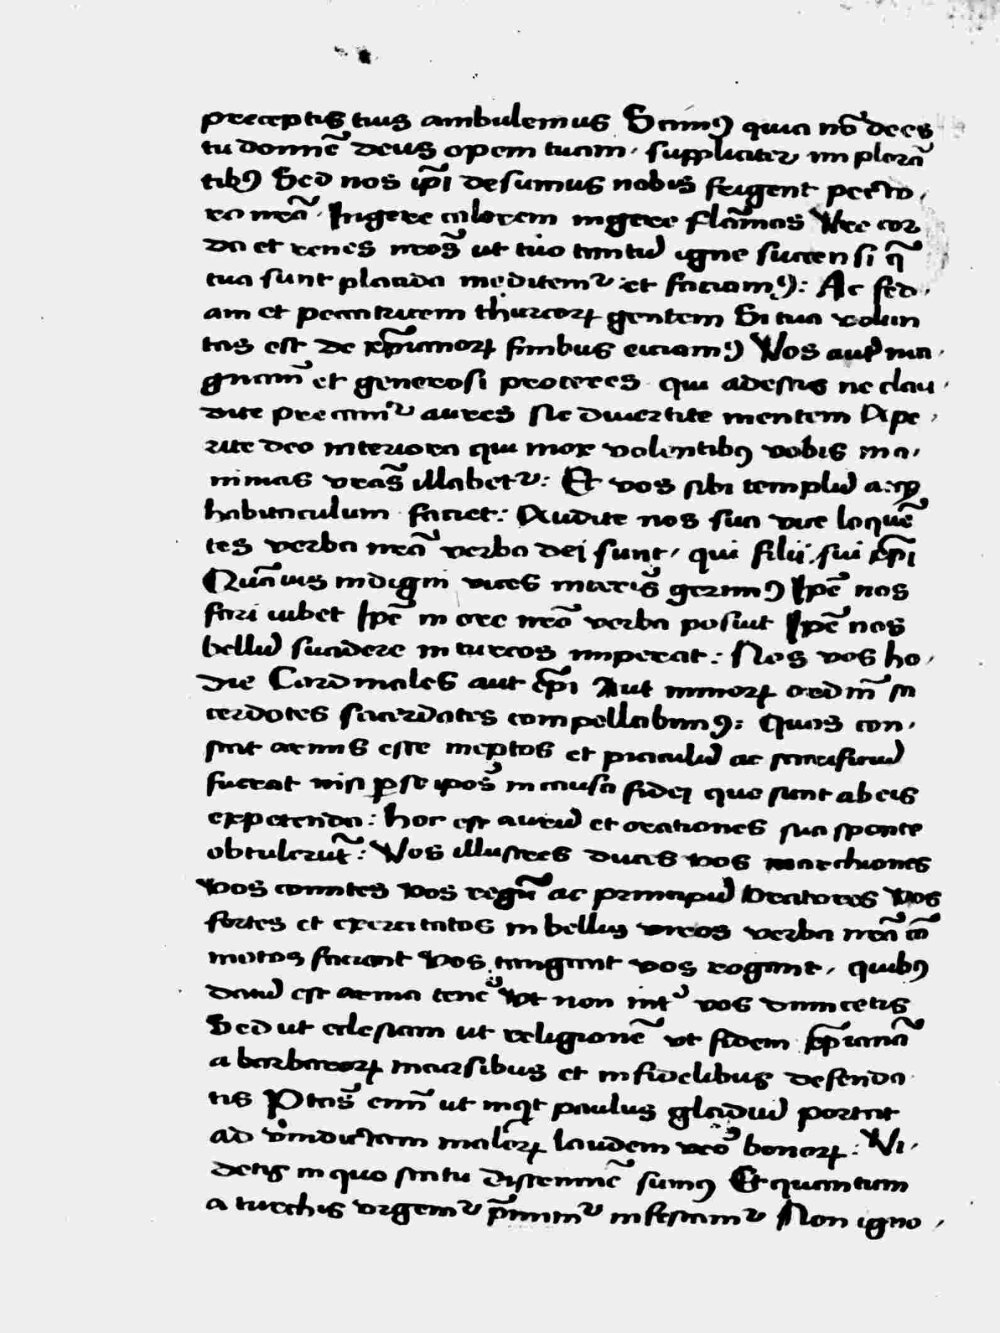 preceptis tuis ambulemus Scimꝰ quia nō dees
tu domine᷑ deus opem tuam. suppliciter implorā
tibꝰ Sed nos ip̄i desumus nobis frigent pecto,
ra nr̄a. Ingere calorem ingere flāmas Vre cor
da et renes nr̄os ut tuo tantū igne succensi q̄
tua sunt placida meditemur et faciamꝰ: Ac fed,
am et peccatricem thurcorꝝ gentem Si tua volun
tas est de xp̄ianorꝝ finibus eiciamꝰ Vos aut ma,
gnanī et generosi proceres qui adestis ne clau,
dite precamur aures Ne diuertite mentem Ape,
rite deo interiora qui mox volentibꝰ vobis ma,
nimas vr̄as illabetur: Et vos sibi templū a:qꝫ
habitaculum faciet: Audite nos sua vice loquē
tes verba nr̄a verba dei sunt, qui filii sui xp̄i
Quāuis indigni vices in terris gerimꝰ Ipse nos
fari iubet Ipse in ore nr̄o verba posuit Ipse nos
bellū suadere in turcos imperat: Nos vos ho,
die Cardinales aut ep̄i Aut minorꝝ ordinū sa
cerdotes sacerdotes compellabimꝰ: Quos con,
stat armis esse ineptos et piaculū ac sacrificiū
fuerat nisi ꝑ se ipos in causa fidei que sunt ab eis
expetenda: hoc est aurū et orationes sua sponte
obtulerūt: Vos illustres duces vos marchiones
Vos comites Vos regū ac principū Oratores Vos
fortes et exercitatos in bellis viros verba nr̄a cō
motos faciant Vos tangant vos rogant, quibꝰ
datū est arma tenere Vt non inter vos dimicetis
Sed ut eclesiam ut religionē vt fidem xp̄ianā
a barbarorꝝ morsibus et infidelibus defenda
tis Ptās enim ut inqt paulus gladiū portat
ad vindictam malorꝝ laudem vero bonorꝝ: Vi,
detis in quo statu discrimine sumꝰ Et quantum
a turchis vrgemur p̄mimur infestamur Non igno,